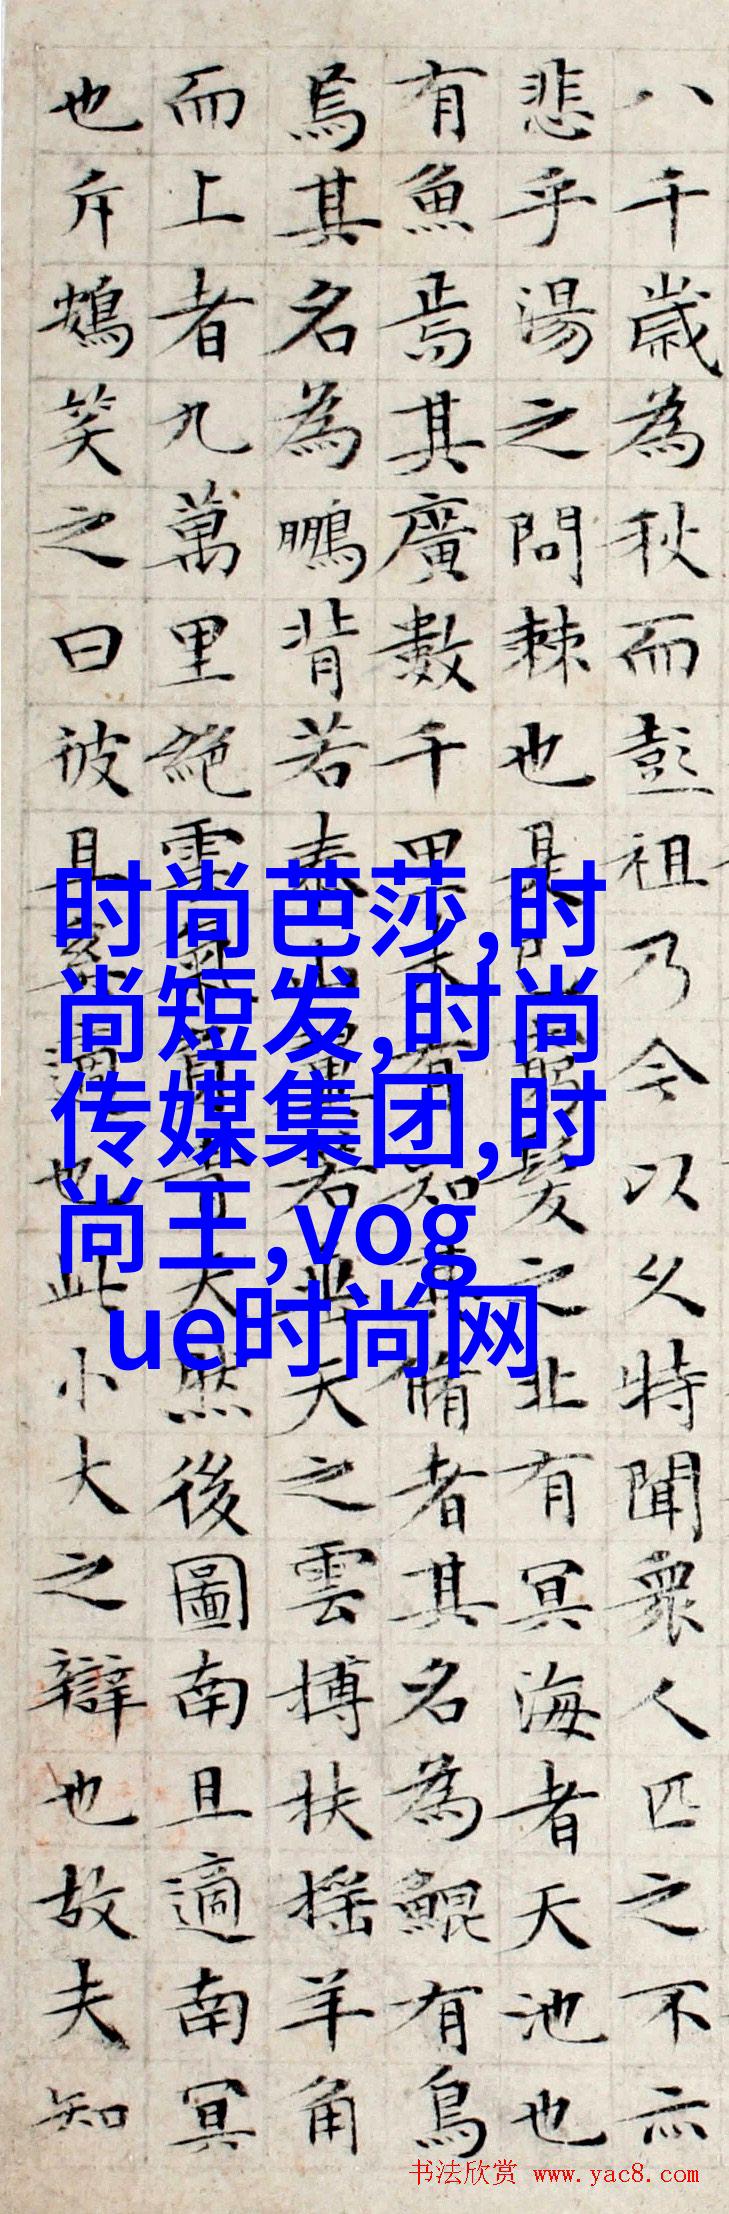 八千歲為秋而彭祖乃今以久特聞衆人匹之不亦
悲乎湯之問棘也是髮之北有冥海者天池也
有魚焉其廣數千里未有知脩者其名為鯤有鳥
焉其名為鵬背若泰山翼若垂天之雲摶扶摇羊角
而上者九萬里絕雲氣負青天然後圖南且適南冥
也斥鴳笑之曰彼且奚適也此小大之辯也故夫知
时尚芭莎,时
尚短发,时尚
传媒集团,时
尚王,vog
ue时尚网
书法欣赏 www.yac8.com